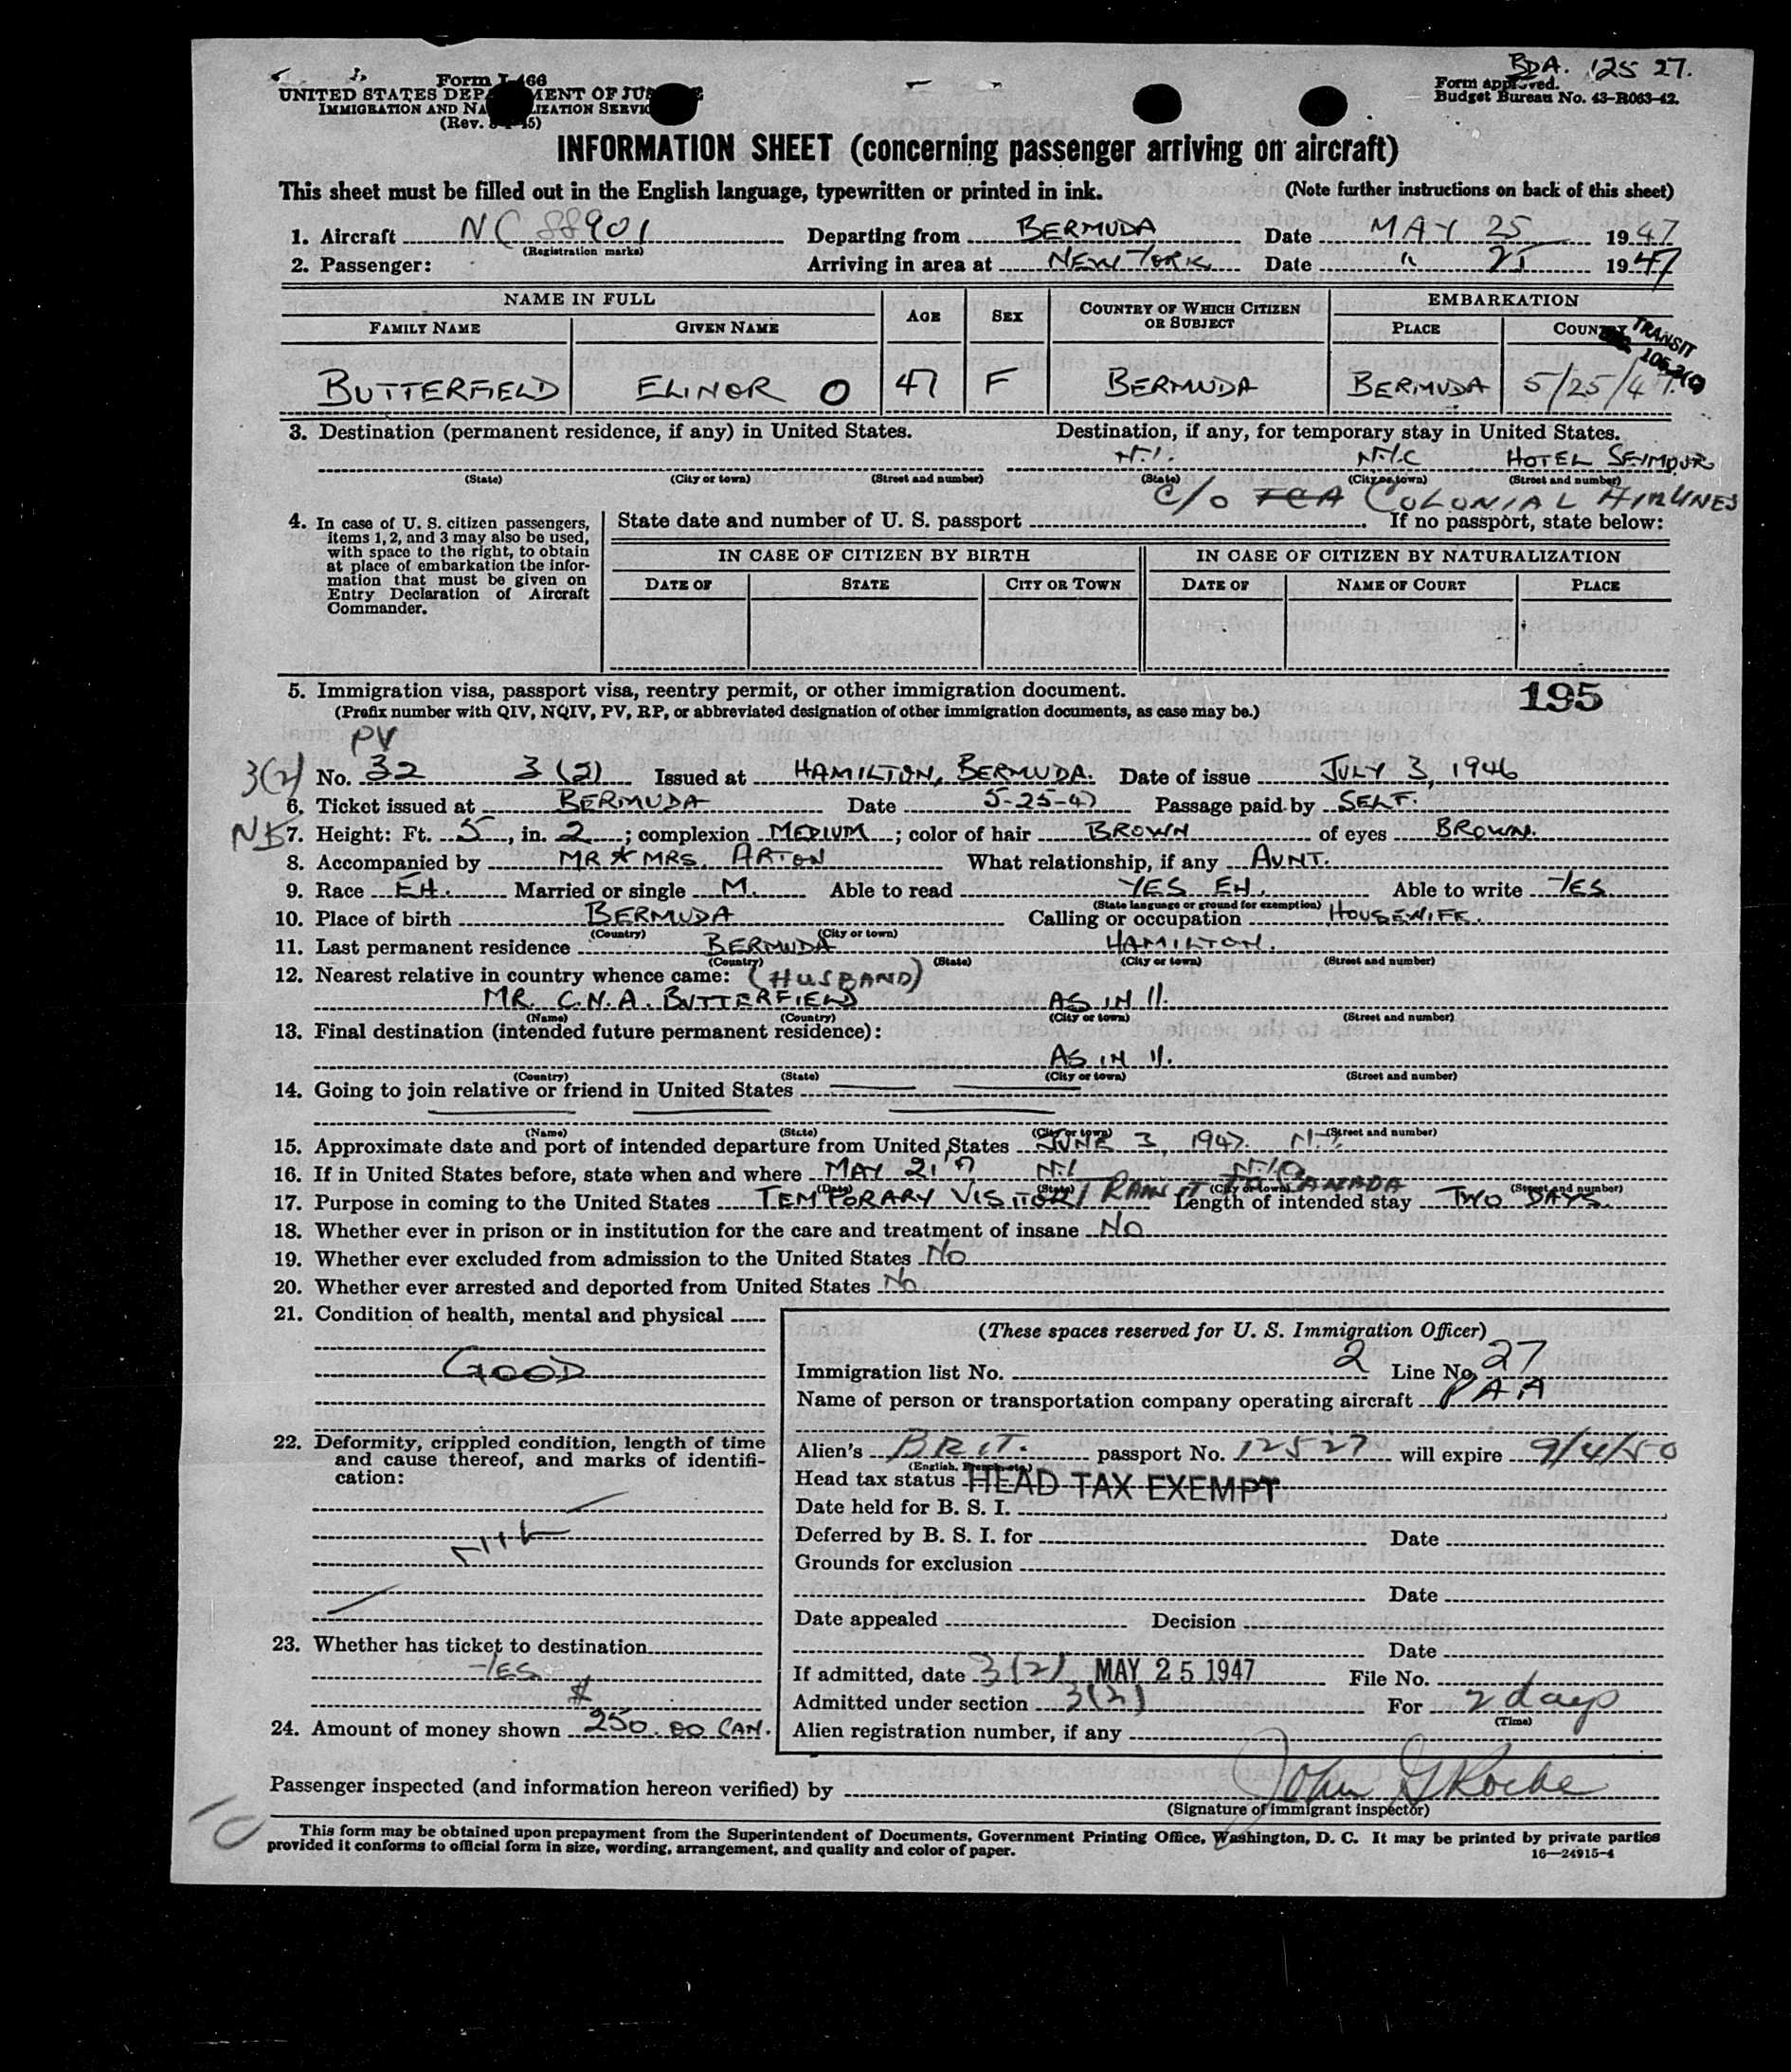 BDA. 125 27.
Form I-466
UNITED STATES DEPARTMENT OF JUSTICE
IMMIGRATION AND NATURALIZATION SERVICE
(Rev. 45)
Form approved.
Budget Bureau No. 43-R063-42.
INFORMATION SHEET (concerning passenger arriving on aircraft)
This sheet must be filled out in the English language, typewritten or printed in ink. (Note further instructions on back of this sheet)
1. Aircraft NC 88901 Departing from BERMUDA Date MAY 25 1947
(Registration marks)
2. Passenger: Arriving in area at NEW YORK Date " 25 1947
NAME IN FULL AGE SEX COUNTRY OF WHICH CITIZEN OR SUBJECT EMBARKATION
FAMILY NAME GIVEN NAME PLACE COUNTRY
TRANSIT
BUTTERFIELD ELINOR O 47 F BERMUDA BERMUDA 5/25/47.
3. Destination (permanent residence, if any) in United States. Destination, if any, for temporary stay in United States.
N.Y. NYC HOTEL SEYMOUR
(State) (City or town) (Street and number) (State) (City or town) (Street and number)
C/O TCA COLONIAL AIRLINES
4. In case of U. S. citizen passengers, items 1, 2, and 3 may also be used, with space to the right, to obtain at place of embarkation the information that must be given on Entry Declaration of Aircraft Commander.
State date and number of U. S. passport If no passport, state below:
IN CASE OF CITIZEN BY BIRTH IN CASE OF CITIZEN BY NATURALIZATION
DATE OF STATE CITY OR TOWN DATE OF NAME OF COURT PLACE
5. Immigration visa, passport visa, reentry permit, or other immigration document. 195
(Prefix number with QIV, NQIV, PV, RP, or abbreviated designation of other immigration documents, as case may be.)
PV
3(2) No. 32 3 (2) Issued at HAMILTON, BERMUDA. Date of issue JULY 3, 1946
6. Ticket issued at BERMUDA Date 5-25-47 Passage paid by SELF.
7. Height: Ft. 5, in. 2; complexion MEDIUM; color of hair BROWN of eyes BROWN.
8. Accompanied by MR & MRS. ARTON What relationship, if any AUNT.
9. Race EH. Married or single M. Able to read YES EH. Able to write YES
(State language or ground for exemption)
10. Place of birth BERMUDA Calling or occupation HOUSEWIFE.
(Country) (City or town)
11. Last permanent residence BERMUDA HAMILTON.
(Country) (State) (City or town) (Street and number)
12. Nearest relative in country whence came: (HUSBAND)
MR. C.N.A. BUTTERFIELD AS IN 11.
(Name) (Country) (City or town) (Street and number)
13. Final destination (intended future permanent residence):
AS IN 11.
(Country) (State) (City or town) (Street and number)
14. Going to join relative or friend in United States
(Name) (State) (City or town) (Street and number)
15. Approximate date and port of intended departure from United States JUNE 3, 1947. N.Y.
16. If in United States before, state when and where MAY N.Y. NYC
(Date) (State) (City or town) (Street and number)
17. Purpose in coming to the United States TEMPORARY VISITOR TRANSIT TO CANADA Length of intended stay TWO DAYS.
18. Whether ever in prison or in institution for the care and treatment of insane NO
19. Whether ever excluded from admission to the United States NO
20. Whether ever arrested and deported from United States NO
21. Condition of health, mental and physical
GOOD
22. Deformity, crippled condition, length of time and cause thereof, and marks of identification:
23. Whether has ticket to destination
YES
$
24. Amount of money shown 250.00 CAN.
(These spaces reserved for U. S. Immigration Officer)
Immigration list No. 2 Line No. 27
Name of person or transportation company operating aircraft PAA
Alien's BRIT. passport No. 12527 will expire 9/4/50
Head tax status HEAD TAX EXEMPT
Date held for B. S. I.
Deferred by B. S. I. for Date
Grounds for exclusion
Date
Date appealed Decision
Date
If admitted, date 3(2) MAY 25 1947 File No.
Admitted under section 3(2) For 2 days
(Time)
Alien registration number, if any
Passenger inspected (and information hereon verified) by John G Roche
(Signature of immigrant inspector)
This form may be obtained upon prepayment from the Superintendent of Documents, Government Printing Office, Washington, D. C. It may be printed by private parties
provided it conforms to official form in size, wording, arrangement, and quality and color of paper. 16—24915-4